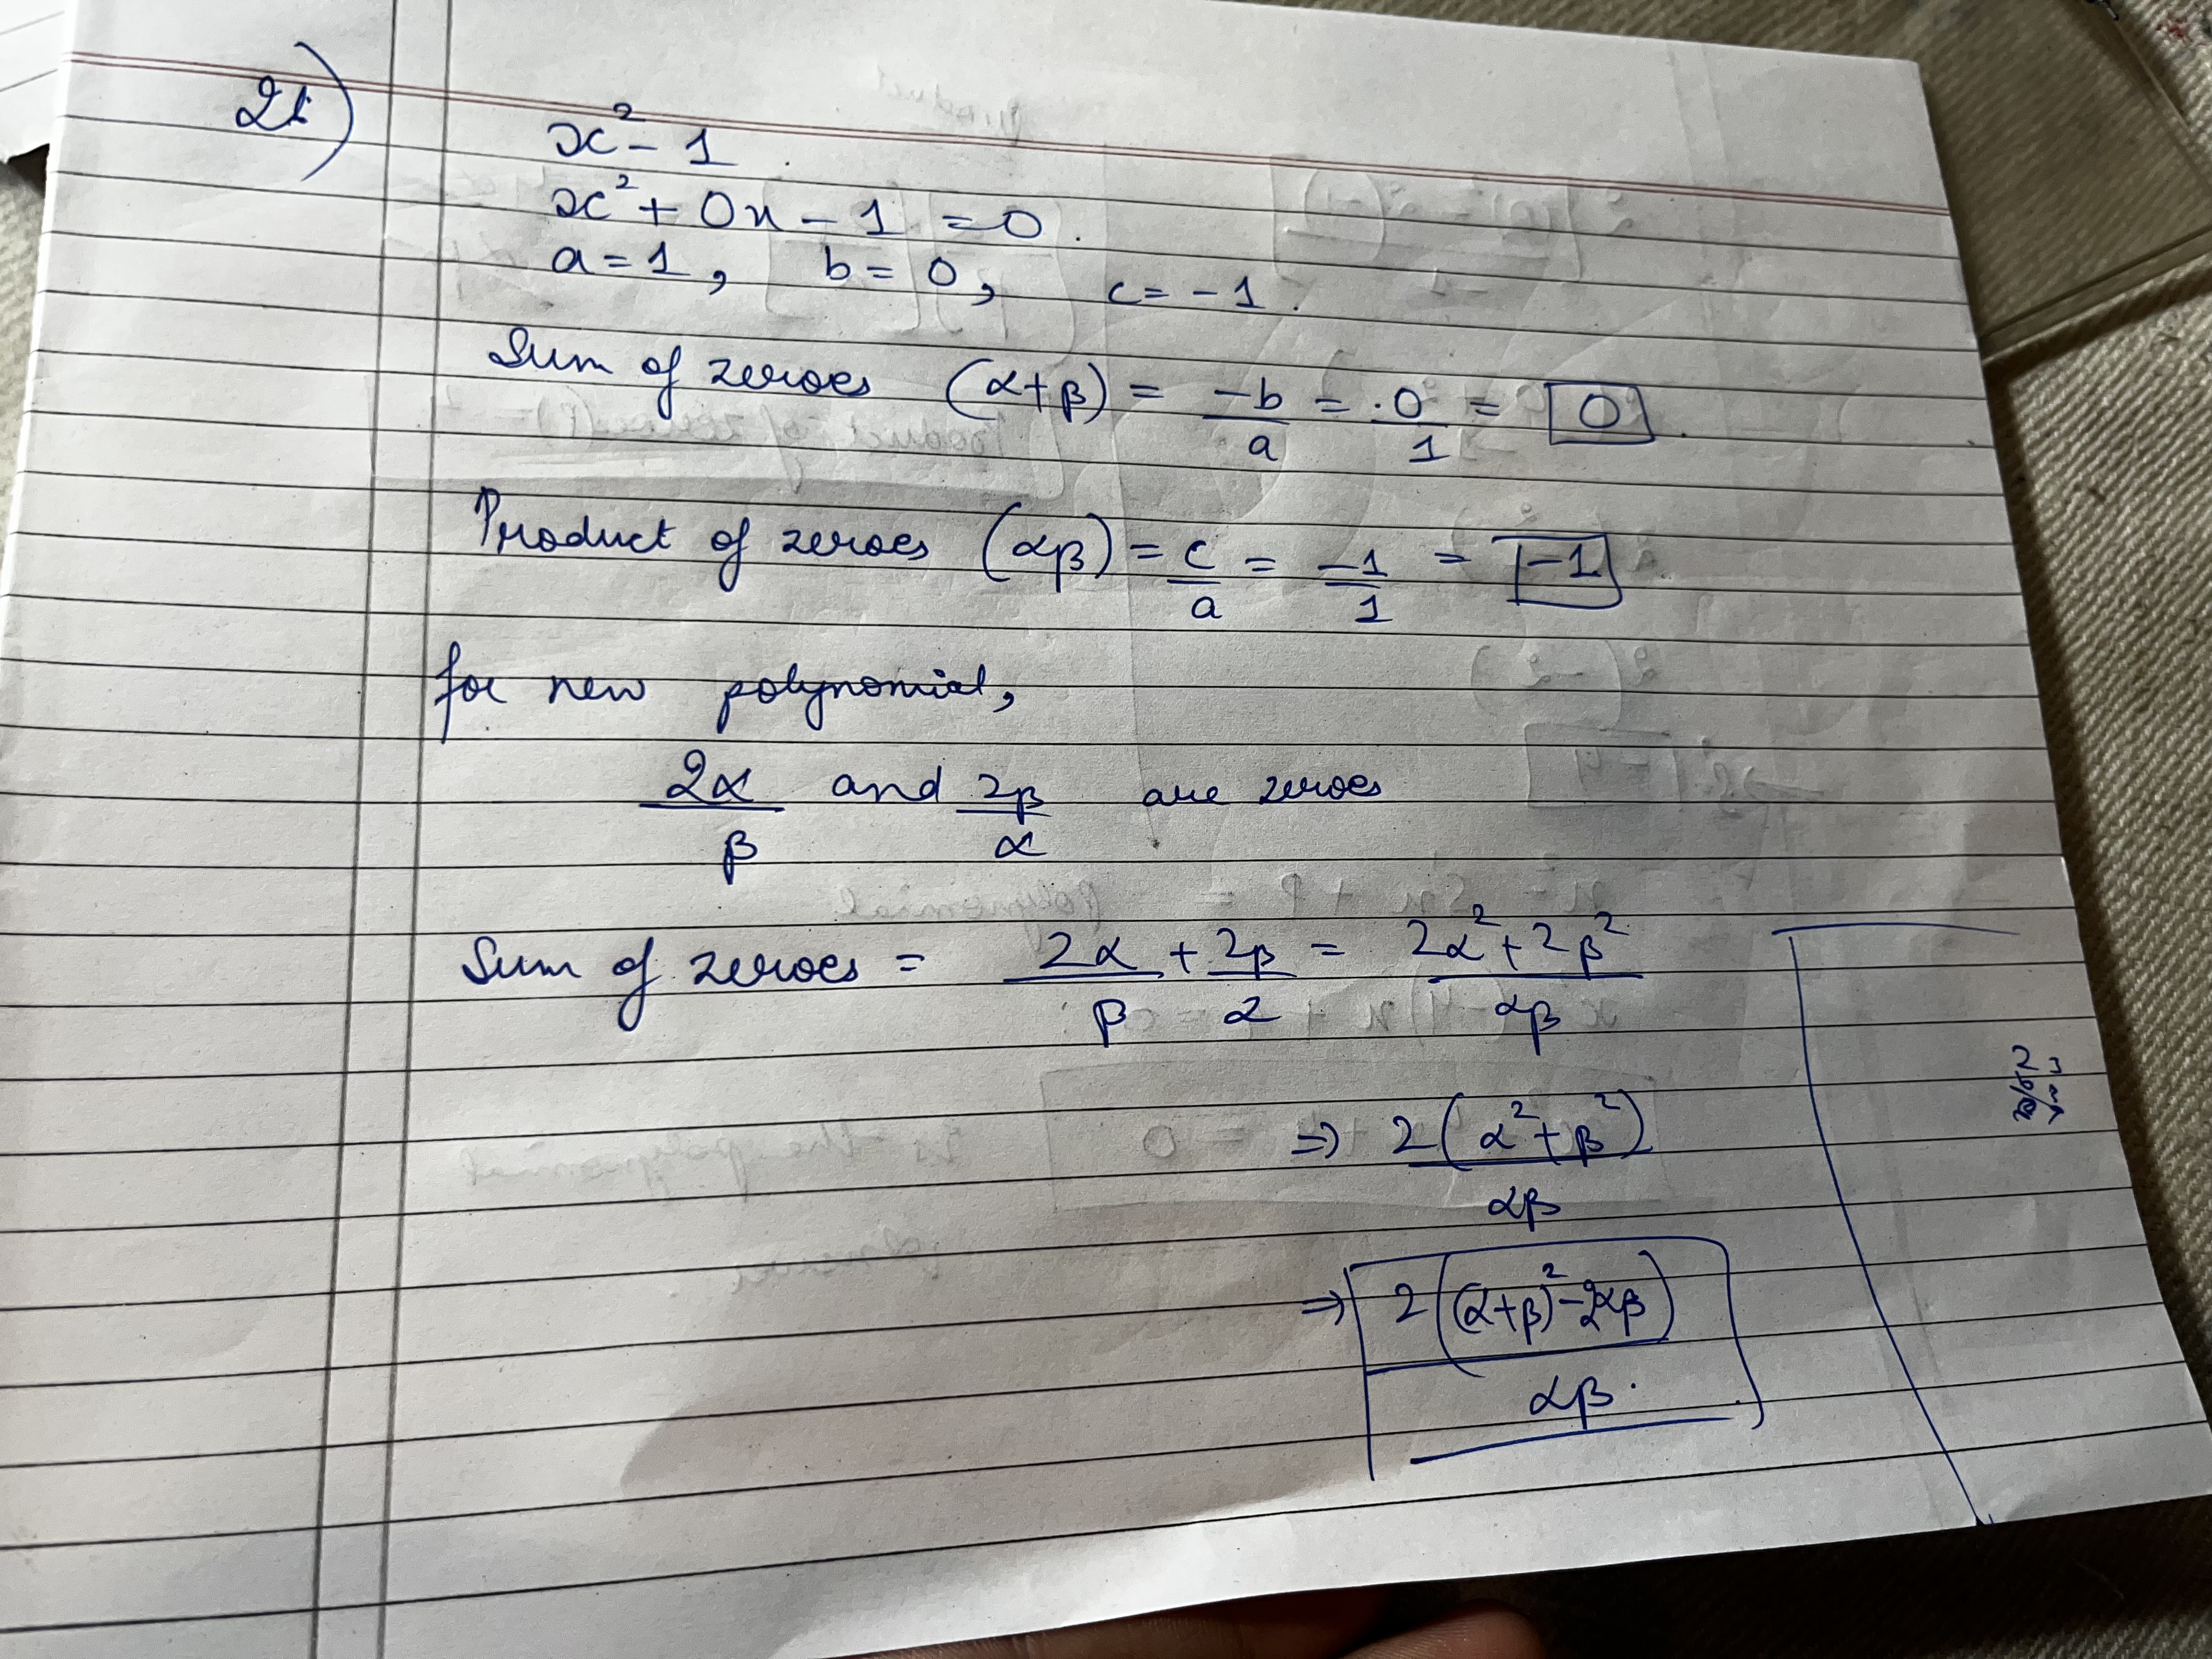 21)
x² - 1
x² + 0x - 1 = 0.
a = 1, b = 0, c = -1.
Sum of zeroes (α+β) = -b/a = 0/1 = 0.
Product of zeroes (αβ) = c/a = -1/1 = -1
for new polynomial,
2α/β and 2β/α are zeroes
Sum of zeroes = 2α/β + 2β/α = 2α² + 2β²/αβ
⇒ 2(α² + β²)/αβ
⇒ 2((α+β)² - 2αβ)/αβ.